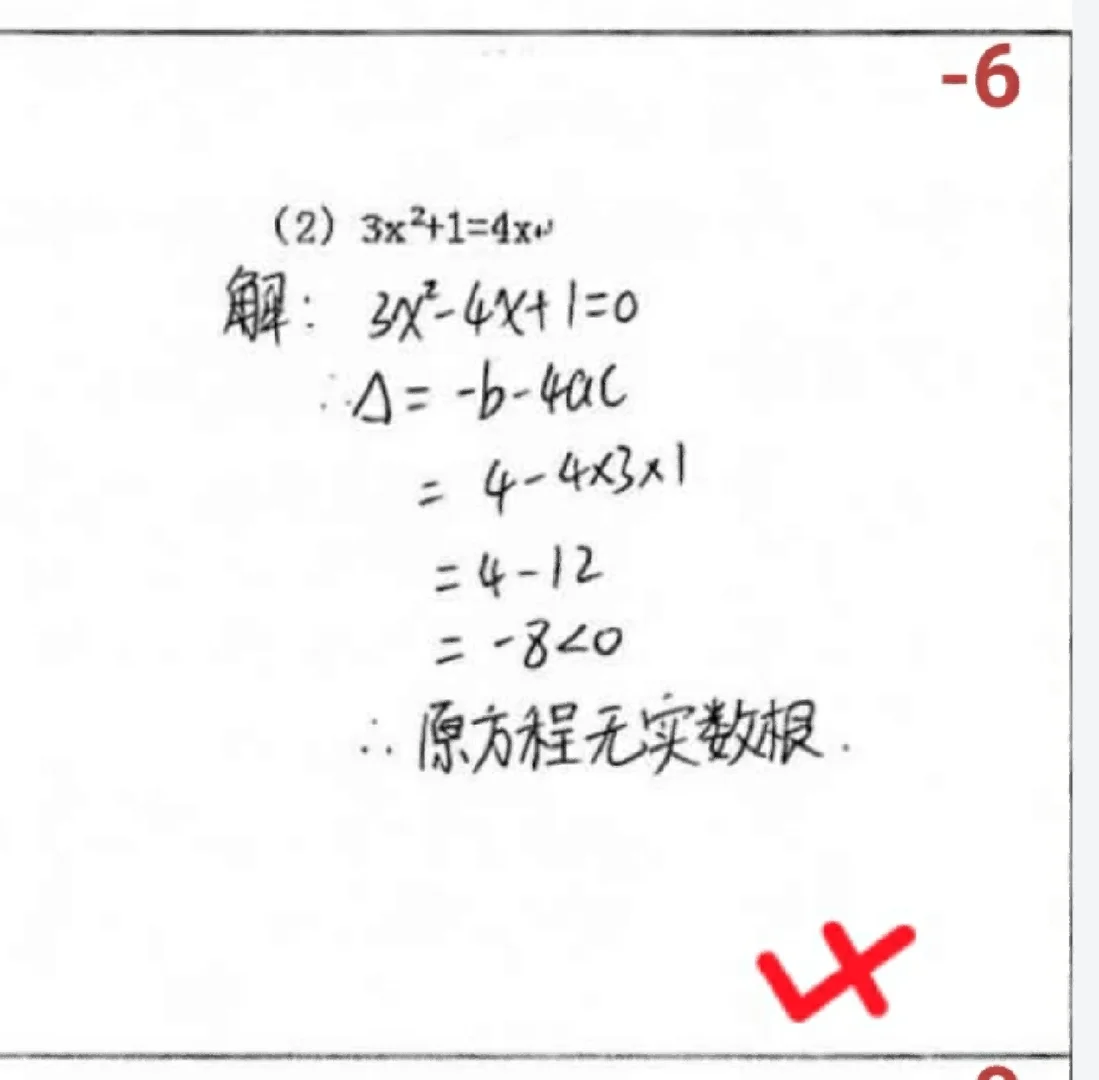 -6
(2) 3x²+1=4x↵
解: 3x²-4x+1=0
∴Δ= -b-4ac
= 4-4×3×1
=4-12
= -8<0
∴原方程无实数根.